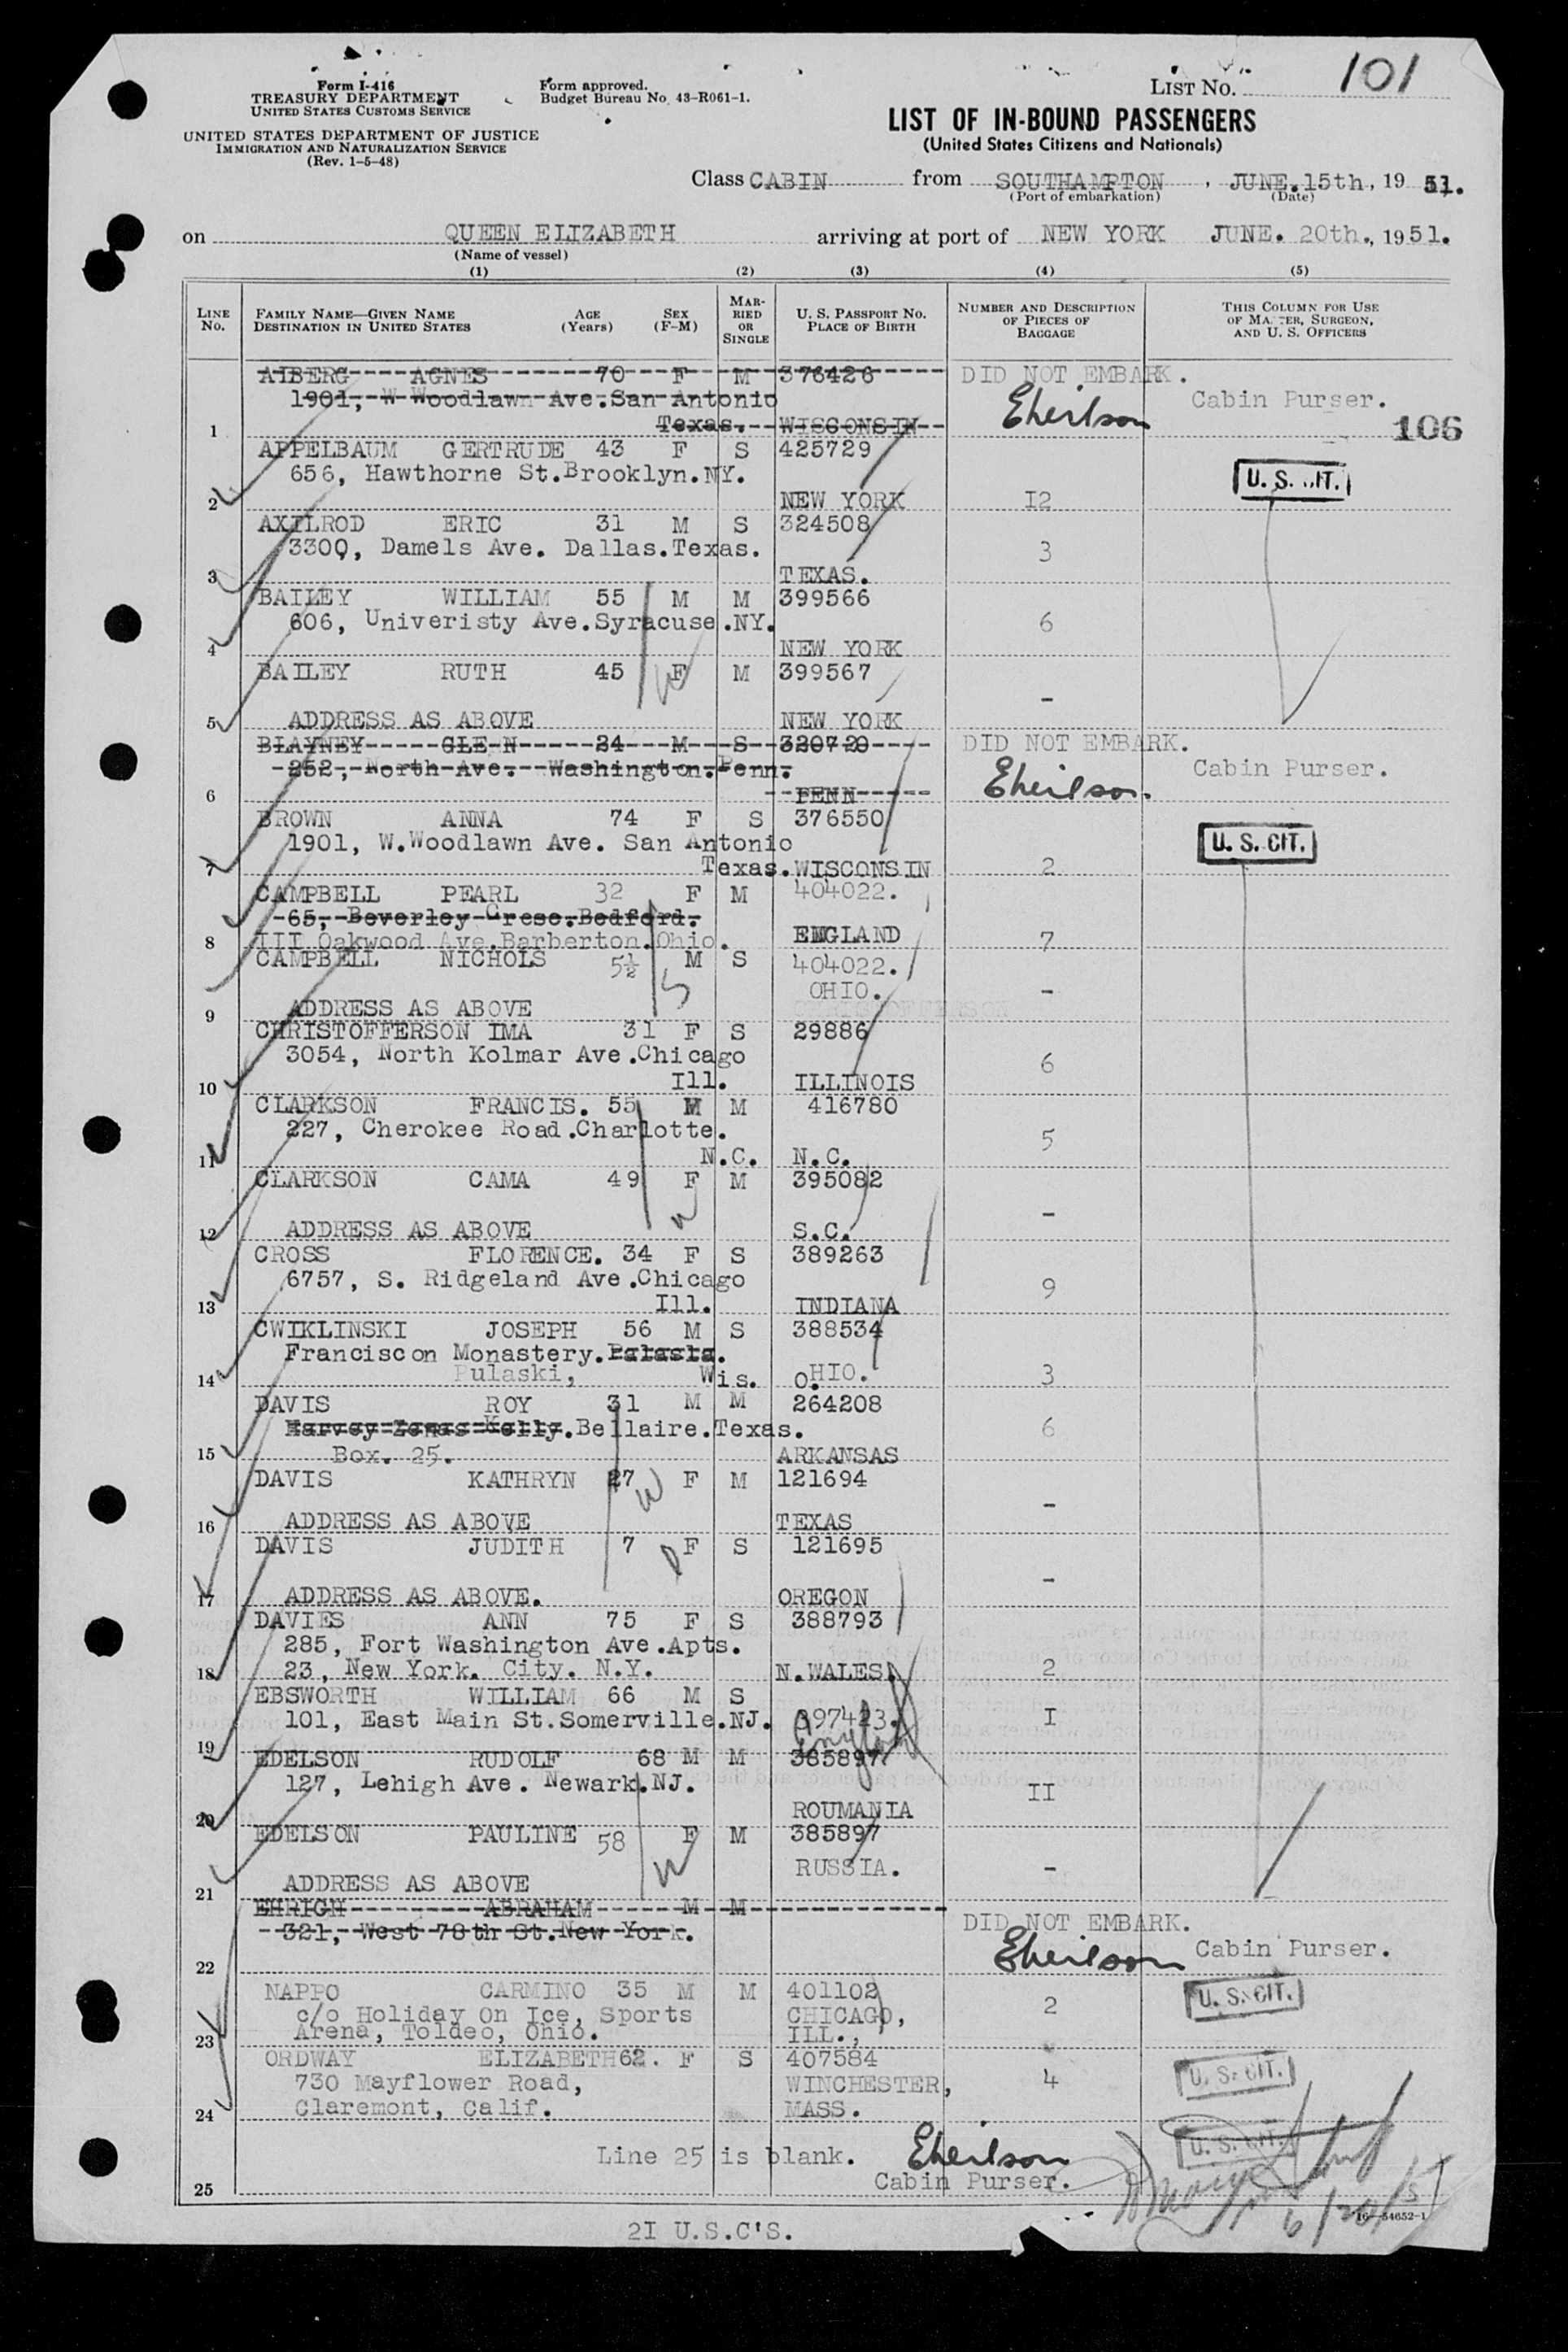 101
Form I-416
TREASURY DEPARTMENT
UNITED STATES CUSTOMS SERVICE
Form approved.
Budget Bureau No. 43-R061-1.
LIST NO.
UNITED STATES DEPARTMENT OF JUSTICE
IMMIGRATION AND NATURALIZATION SERVICE
(Rev. 1-5-48)
LIST OF IN-BOUND PASSENGERS
(United States Citizens and Nationals)
Class CABIN from SOUTHAMPTON, JUNE.15th, 19 51.
(Port of embarkation) (Date)
on QUEEN ELIZABETH arriving at port of NEW YORK JUNE. 20th., 1951.
(Name of vessel)
(1) (2) (3) (4) (5)
LINE No. FAMILY NAME—GIVEN NAME DESTINATION IN UNITED STATES AGE (Years) SEX (F-M) MARRIED OR SINGLE U. S. PASSPORT NO. PLACE OF BIRTH NUMBER AND DESCRIPTION OF PIECES OF BAGGAGE THIS COLUMN FOR USE OF MASTER, SURGEON, AND U. S. OFFICERS
AIBERG AGNES 70 F M 376426 DID NOT EMBARK.
1901, W Woodlawn Ave.San Antonio Eheilson Cabin Purser.
1 Texas. WISCONSIN 106
APPELBAUM GERTRUDE 43 F S 425729
656, Hawthorne St.Brooklyn.NY. U. S. CIT.
2 NEW YORK I2
AXILROD ERIC 31 M S 324508
3300, Damels Ave. Dallas.Texas. 3
3 TEXAS.
BAILEY WILLIAM 55 M M 399566
606, Univeristy Ave.Syracuse.NY. 6
4 NEW YORK
BAILEY RUTH 45 F M 399567
-
5 ADDRESS AS ABOVE NEW YORK
BLAYNEY GLE N 24 M S 320720 DID NOT EMBARK.
252, North Ave. Washington.Penn. Cabin Purser.
6 PENN Eheilson.
BROWN ANNA 74 F S 376550
1901, W.Woodlawn Ave. San Antonio U. S. CIT.
7 Texas.WISCONSIN 2
CAMPBELL PEARL 32 F M 404022.
65, Beverley Cresc.Bedford.
8 III Oakwood Ave.Barberton.Ohio. ENGLAND 7
CAMPBELL NICHOLS 5½ M S 404022.
OHIO. -
9 ADDRESS AS ABOVE
CHRISTOFFERSON IMA 31 F S 29886
3054, North Kolmar Ave.Chicago 6
10 Ill. ILLINOIS
CLARKSON FRANCIS. 55 M M 416780
227, Cherokee Road.Charlotte. 5
11 N.C. N.C.
CLARKSON CAMA 49 F M 395082
-
12 ADDRESS AS ABOVE S.C.
CROSS FLORENCE. 34 F S 389263
6757, S. Ridgeland Ave.Chicago 9
13 Ill. INDIANA
CWIKLINSKI JOSEPH 56 M S 388534
Franciscon Monastery.
14 Pulaski, Wis. OHIO. 3
DAVIS ROY 31 M M 264208
Bellaire.Texas. 6
15 Box. 25. ARKANSAS
DAVIS KATHRYN 27 F M 121694
-
16 ADDRESS AS ABOVE TEXAS
DAVIS JUDITH 7 F S 121695
-
17 ADDRESS AS ABOVE. OREGON
DAVIES ANN 75 F S 388793
285, Fort Washington Ave.Apts.
18 23, New York. City. N.Y. N.WALES. 2
EBSWORTH WILLIAM 66 M S
101, East Main St.Somerville.NJ. 397423. I
19
EDELSON RUDOLF 68 M M 385897
127, Lehigh Ave. Newark.NJ. II
20 ROUMANIA
EDELSON PAULINE 58 F M 385897
RUSSIA. -
21 ADDRESS AS ABOVE
EHRIGH ABRAHAM M M
321, West 78th St.New York. DID NOT EMBARK.
22 Eheilson Cabin Purser.
NAPPO CARMINO 35 M M 401102 U. S. CIT.
c/o Holiday On Ice, Sports CHICAGO, 2
23 Arena, Toldeo, Ohio. ILL.,
ORDWAY ELIZABETH62. F S 407584
730 Mayflower Road, WINCHESTER, 4 U. S. CIT.
24 Claremont, Calif. MASS.
Line 25 is blank. Eheilson U. S. CIT.
25 Cabin Purser.
6/20/51
16—54652-1
2I U.S.C'S.